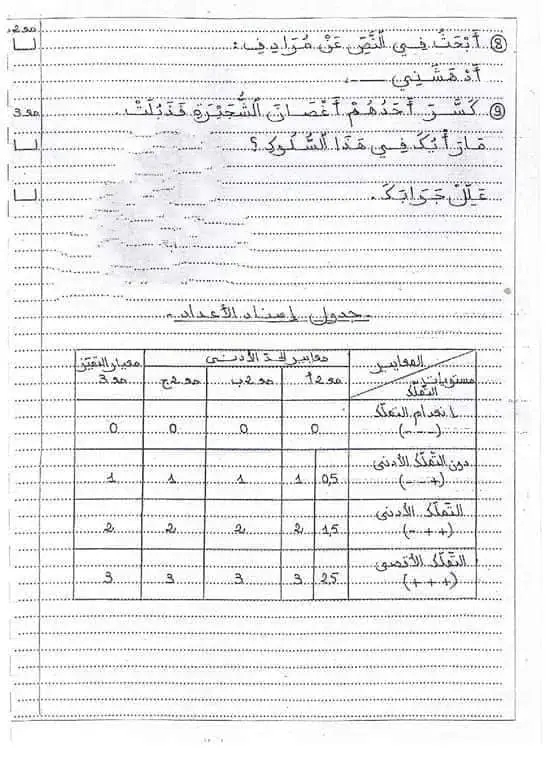 مع2ب
⑧ أَبْحَثُ فِي النَّصِّ عَنْ مُرَادِفِ:
أَدْهَشَنِي ـ ـ ـ.
⑨ كَسَّرَ أَحَدُهُمْ أَغْصَانَ الشُّجَيْرَةِ فَذَبُلَتْ
مع3
مَا رَأْيُكَ فِي هَذَا السُّلُوكِ؟
عَلِّلْ جَوَابَكَ.
- جدول إسناد الأعداد -
المعايير
مستويات التملّك
معايير الحدّ الأدنى
معيار التميّز
مع2أ مع2ب مع2ج مع3
انعدام التملّك
(- - -)
0 0 0 0
دون التملّك الأدنى
(+ - -)
0,5 1 1 1 1
التملّك الأدنى
(+ + -)
1,5 2 2 2 2
التملّك الأقصى
(+ + +)
2,5 3 3 3 3